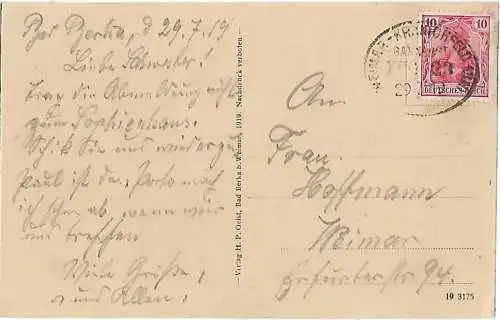 Bad Berka, d 29.7.19
Liebe Schwester!
Trag die Abmeldung nicht
zum Sophienhaus.
Schick Sie uns wieder zu
Paul ist da, Porto mach
ich schon ab, wenn wir
uns treffen
Viele Grüße,
uns Allen,
– Verlag H. P. Gehd, Bad Berka b. Weimar, 1919. Nachdruck verboten –
10 10
DEUTSCHES REICH
WEIMAR-KRANICHFELD
BAHNPOST
29
An
Frau.
Hoffmann
Weimar
Erfurterstr 94.
19 3175